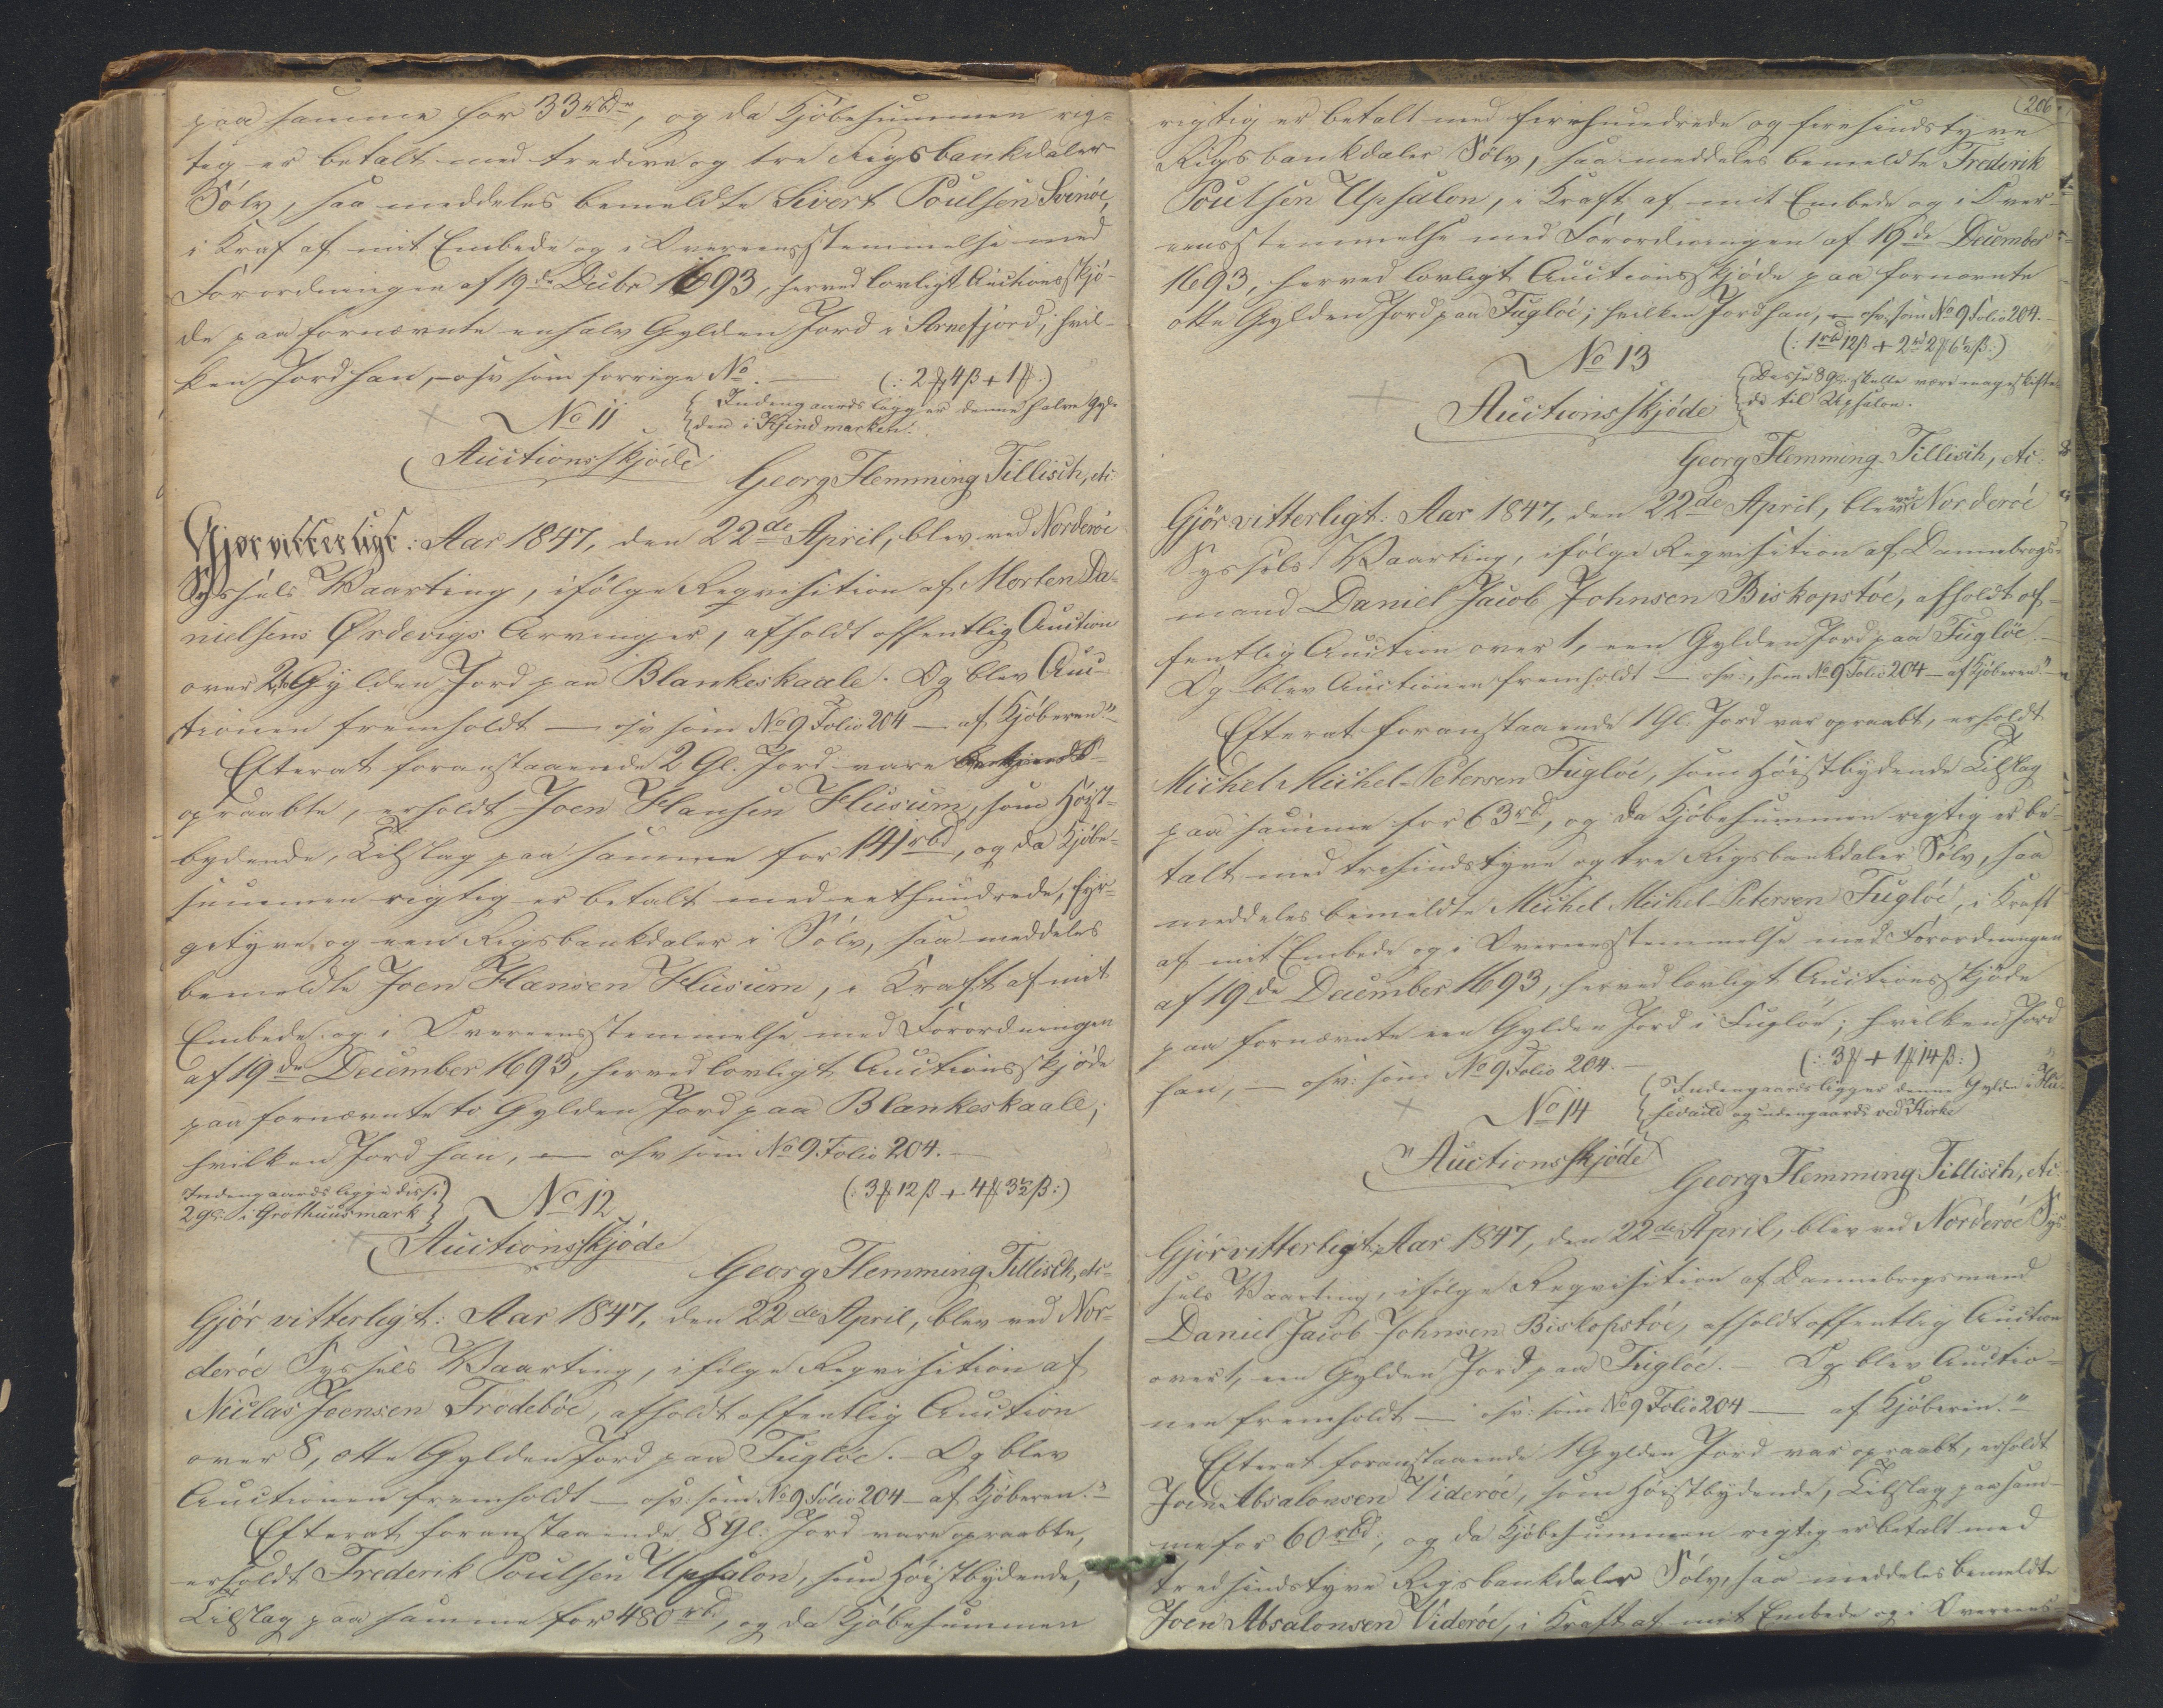 paa samme for 33 rbdr, og da Kjöbesummen rig-
tig er betalt med tredive og tre Rigsbankdaler
Sölv, saa meddeles bemeldte Sivert Poulsen Svinöe,
i Kraf af mit Embede og i Overeensstemmelse med
Forordningen af 19de Decbr 1693, herved lovligt Auctionsskjö-
de paa fornævnte en halv Gylden Jord i Arnefjord; hvil-
ken Jord han, - osv som forrige No. — (: 2 ₰ 4 β + 1 ₰ :)
No 11
Indengaards ligger denne halve Gyl-
den i Kjindmarken.
Auctionsskjöde
Georg Flemming Tillisch, etc:
Gjör vitterligt: Aar 1847, den 22de April, blev ved Norderöe
Syssels Vaarting, ifölge Reqvisition af Morten Da-
nielsens Ørdevigs Arvinger, afholdt offentlig Auction
over 2, to Gylden Jord paa Blankeskaale. Og blev Auc-
tionen fremholdt — osv som No 9 Folio 204 — af Kjöberen."
Efterat foranstaaende 2 Gl. Jord vare
opraabte, erholdt Joen Hansen Husum, som Höist-
bydende, Tilslag paa samme for 141 rbd, og da Kjöbe-
summen rigtig er betalt med eethundrede, fyr-
getyve og een Rigsbankdaler i Sölv, saa meddeles
bemeldte Joen Hansen Husum, i Kraft af mit
Embede og i Overeensstemmelse med Forordningen
af 19de December 1693, herved lovligt Auctionsskjöde
paa fornævnte to Gylden Jord paa Blankeskaale;
hvilken Jord han, — osv som No 9 Folio 204. —
Indengaards ligge disse
2 Gl: i Grothuusmark
No 12
(: 3 ₰ 12 β + 4 ₰ 3½ β :)
Auctionsskjöde
Georg Flemming Tillisch, etc:
Gjör vitterligt: Aar 1847, den 22de April, blev ved Nor-
deröe Syssels Vaarting, ifölge Reqvisition af
Niclas Joensen Trödeböe, afholdt offentlig Auction
over 8, otte Gylden Jord paa Fuglöe. — Og blev
Auctionen fremholdt — osv: som No 9 Folio 204 — af Kjöberen."
Efterat foranstaaende 8 Gl: Jord vare opraabte,
erholdt Frederik Poulsen Upsalon, som Höistbydende,
Tilslag paa samme for 480 rbd, og da Kjöbesummen
206.
rigtig er betalt med firehundrede og firesindstyve
Rigsbankdaler Sölv, saa meddeles bemeldte Frederik
Poulsen Upsalon, i Kraft af mit Embede og i Over-
eensstemmelse med Forordningen af 19de December
1693, herved lovligt Auctionsskjöde paa fornævnte
otte Gylden Jord paa Fuglöe; hvilken Jord han, — osv: som No 9 Folio 204. —
(: 1 rbd 12 β + 2 rd 2 ₰ 6½ β :)
No 13
Disse 8 Gl: skulle være mageskifte-
de til Upsalon.
Auctionsskjöde
Georg Flemming Tillisch, etc:
Gjör vitterligt: Aar 1847, den 22de April, blev ved Norderöe
Syssels Vaarting, ifölge Reqvisition af Dannebrogs-
mand Daniel Jacob Johnsen Biskopstöe, afholdt of-
fentlig Auction over 1, een Gylden Jord paa Fuglöe. —
Og blev Auctionen fremholdt — osv:, som No 9 Folio 204 — af Kjöberen."
Efterat foranstaaende 1 Gl. Jord var opraabt, erholdt
Michel Michel-Petersen Fuglöe, som Höistbydende Tilslag
paa samme for 63 rbd, og da Kjöbesummen rigtig er be-
talt med tresindstyve og tre Rigsbankdaler Sölv, saa
meddeles bemeldte Michel Michel-Petersen Fuglöe, i Kraft
af mit Embede og i Overeensstemmelse med Forordningen
af 19de December 1693, herved lovligt Auctionsskjöde
paa fornævnte een Gylden Jord i Fuglöe; hvilken Jord
han, — osv: som No 9 Folio 204. — (: 3 ₰ + 1 ₰ 14 β :)
No 14
Indengaards ligger denne Gylden i
og udengaards ved Kirke
Auctionsskjöde
Georg Flemming Tillisch, etc:
Gjör vitterligt: Aar 1847, den 22de April, blev ved Norderöe Sys-
sels Vaarting, ifölge Reqvisition af Dannebrogsmand
Daniel Jacob Johnsen Biskopstöe, afholdt offentlig Auction
over 1, een Gylden Jord paa Fuglöe. — Og blev Auctio-
nen fremholdt — osv: som No 9 Folio 204 — af Kjöberen."
Efterat foranstaaende 1 Gylden Jord var opraabt, erholdt
Joen Absalonsen Videröe, som Höistbydende, Tilslag paa sam-
me for 60 rbd; og da Kjöbesummen rigtig er betalt med
tredsindstyve Rigsbankdaler Sölv, saa meddeles bemeldte
Joen Absalonsen Videröe, i Kraft af mit Embede og i Overeens-